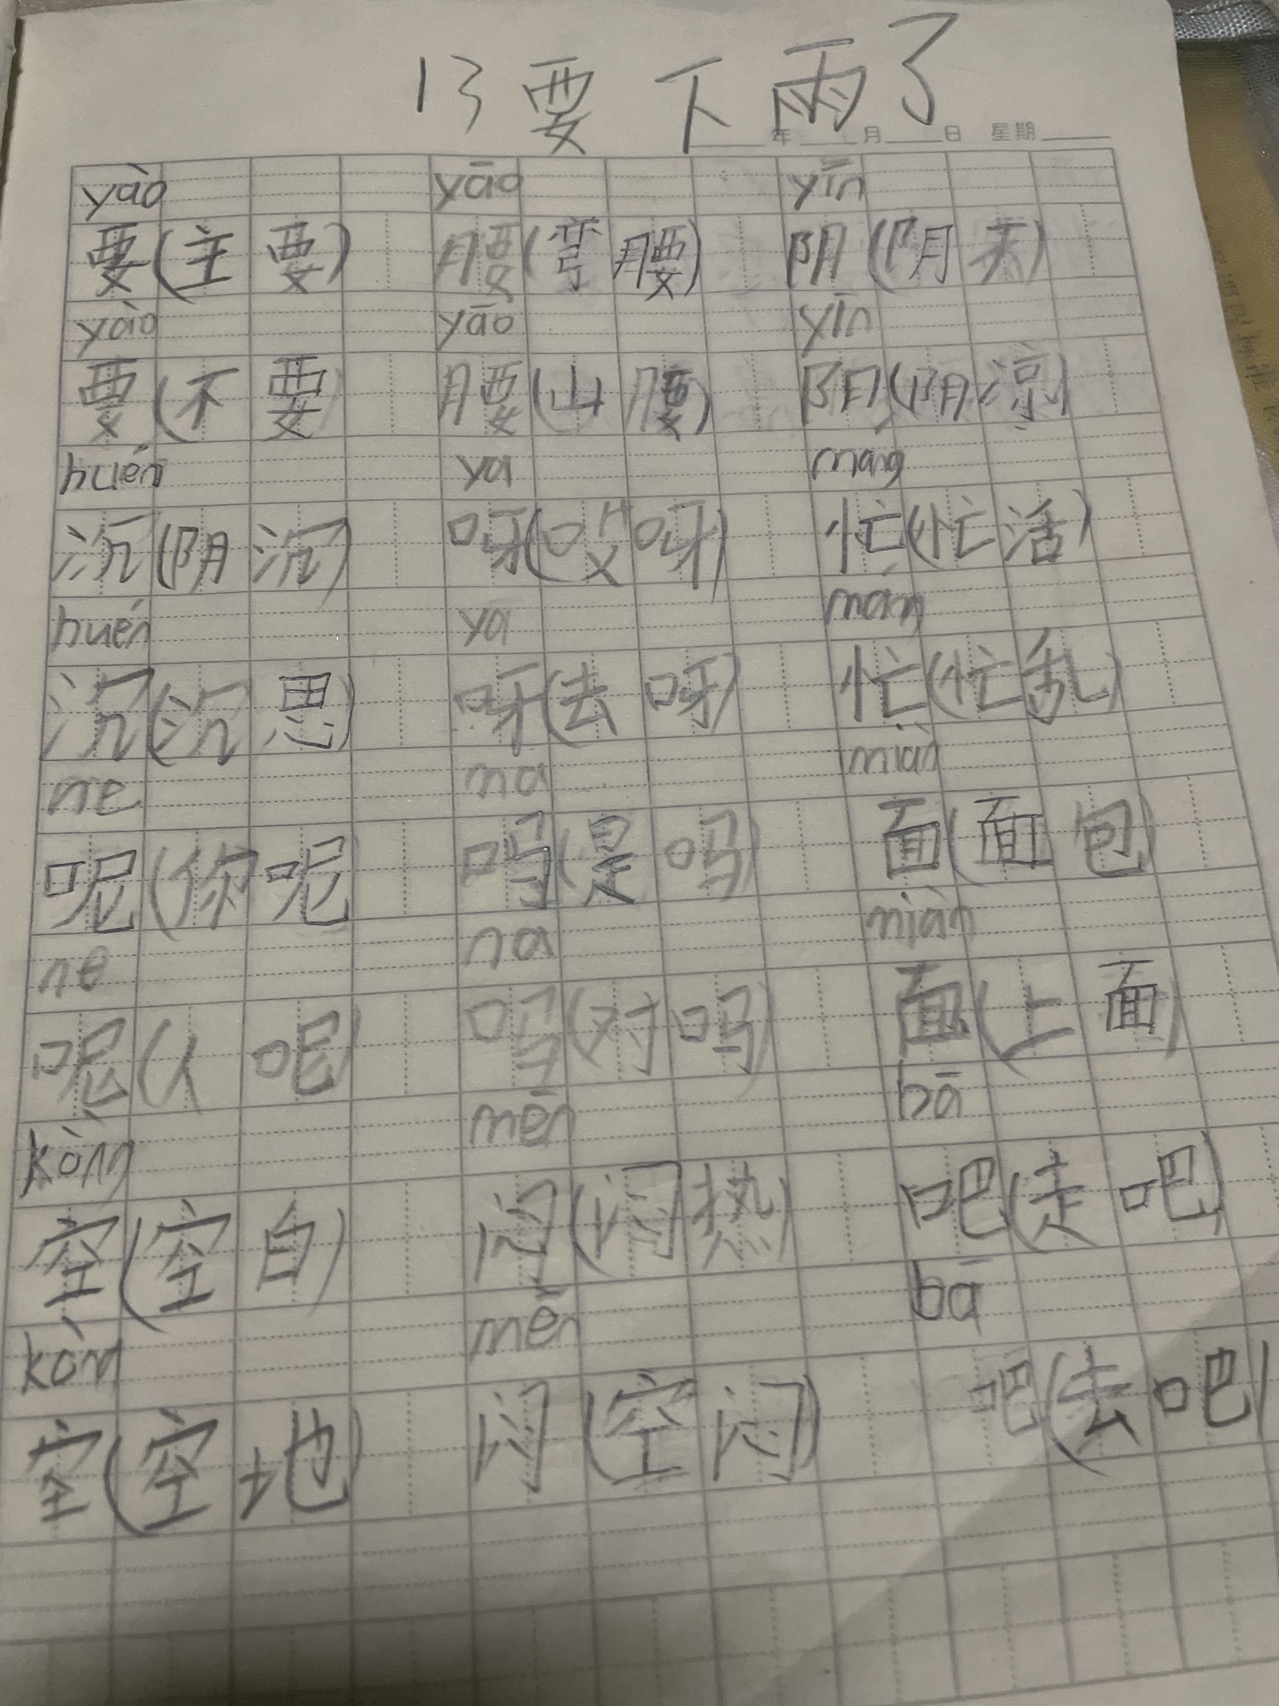 13 要下雨了
年 月 日 星期
yào yāo yīn
要(主要) 腰(弯腰) 阴(阴天)
yào yāo yīn
要(不要 腰(山腰) 阴(阴凉)
huén ya máng
沉(阴沉) 呀(哎呀) 忙(忙活)
huén ya máng
沉(沉思) 呀(去呀) 忙(忙乱)
ne ma miàn
呢(你呢 吗(是吗) 面(面包)
ne ma miàn
呢(人呢) 吗(对吗) 面(上面)
kòng mēn bā
空(空白) 闷(闷热) 吧(走吧)
kòng mēn bā
空(空地) 闷(空闷) 吧(去吧)